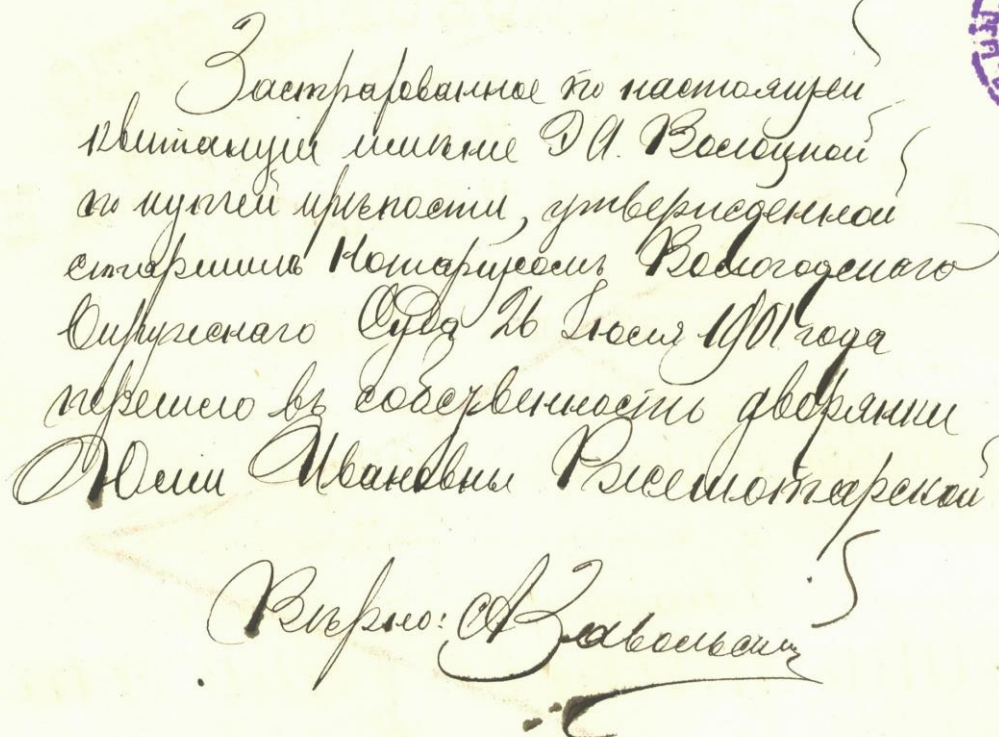 Застрахованное по настоящей
квитанции имение Э А. Волоцкой
по купчей крѣпости, утвержденной
старшимъ Нотариусомъ Вологодскаго
Окружнаго Суда 26 Іюля 1901 года
перешло въ собственность дворянки
Юліи Ивановны
Вѣрно: